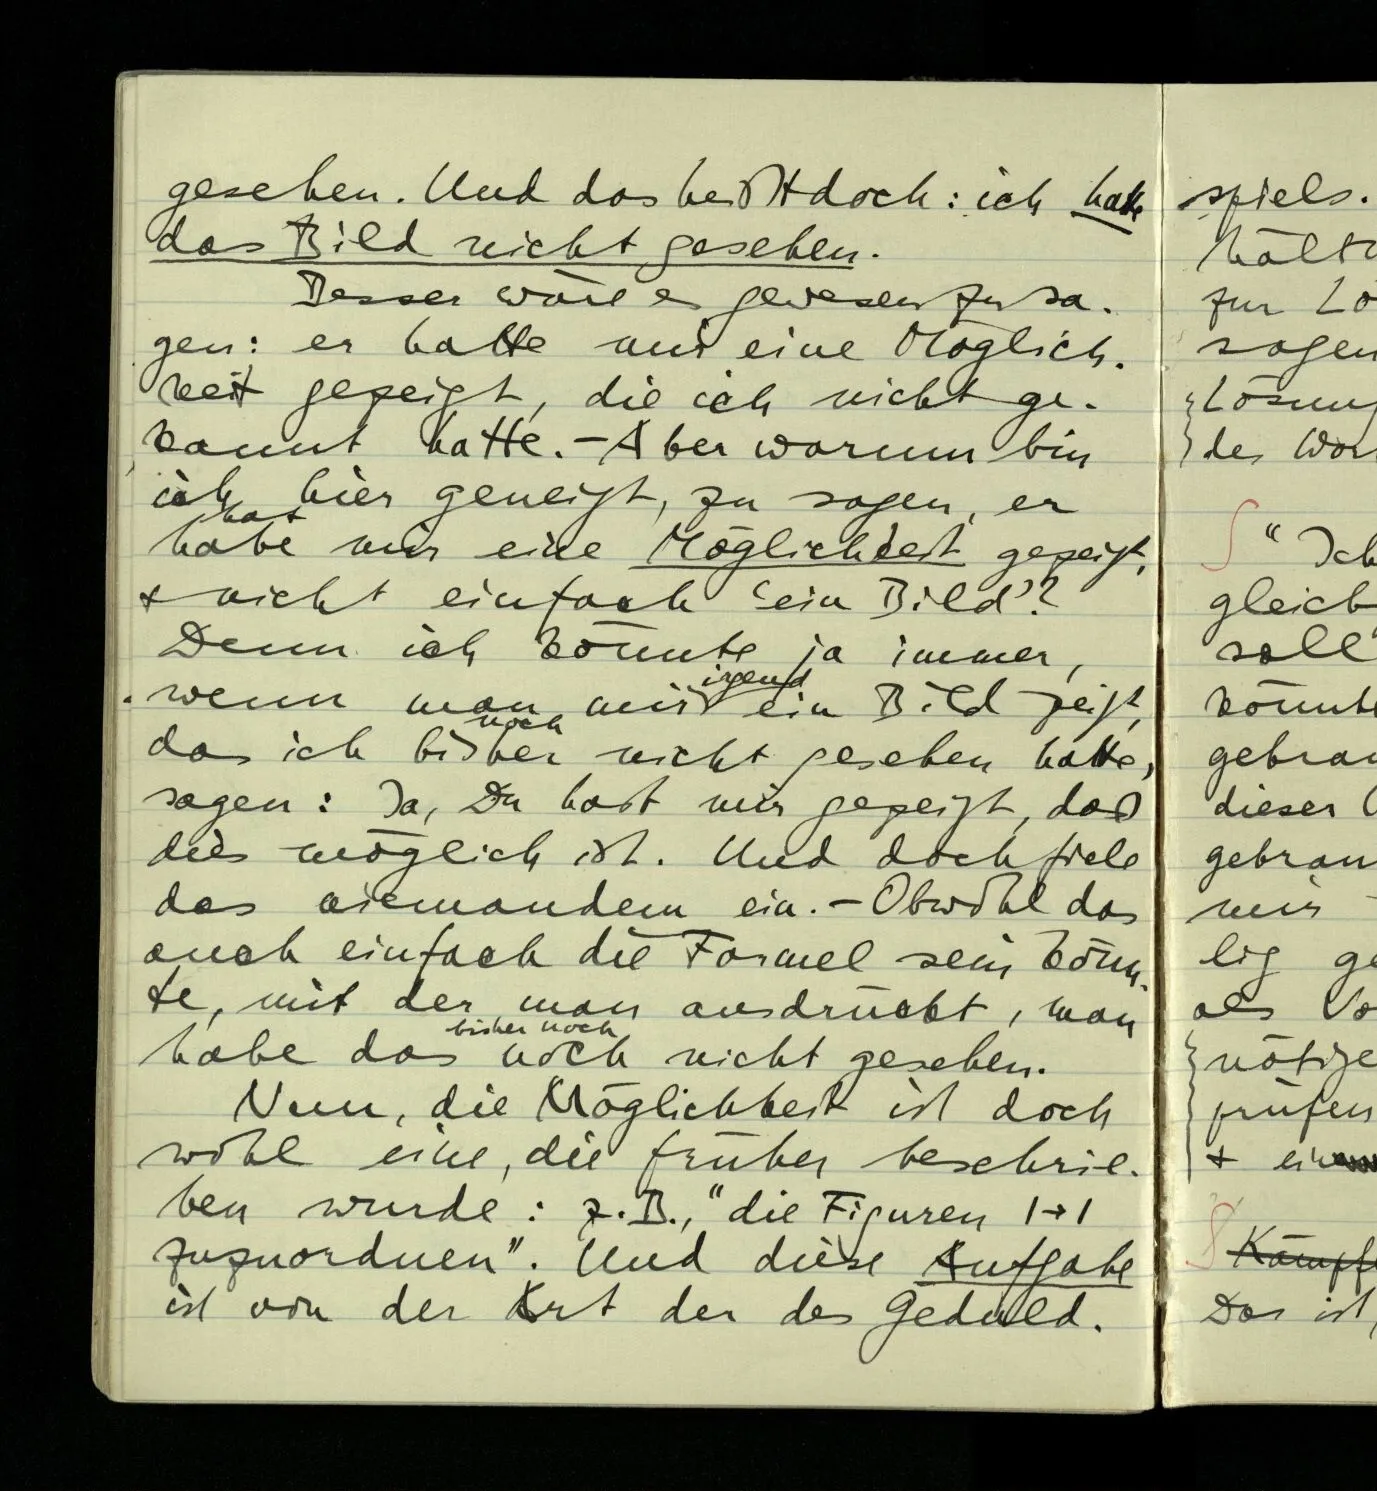 gesehen. Und das heißt doch: ich hatte
das Bild nicht gesehen.
Besser wäre es gewesen zu sa-
gen: er hatte mir eine Möglich-
keit gezeigt, die ich nicht ge-
kannt hatte. – Aber warum bin
ich hier geneigt, zu sagen, er
hat
habe mir eine Möglichkeit gezeigt,
& nicht einfach ‘ein Bild’?
Denn ich könnte ja immer,
irgend
wenn man mir ein Bild zeigt,
noch
das ich bisher nicht gesehen hatte,
sagen: Ja, Du hast mir gezeigt, daß
dies möglich ist. Und doch fiele
das niemandem ein. – Obwohl das
auch einfach die Formel sein könn-
te, mit der man ausdrückt, man
bisher noch
habe das noch nicht gesehen.
Nun, die Möglichkeit ist doch
wohl eine, die früher beschrie-
ben wurde: z.B., “die Figuren 1→1
zuzuordnen”. Und diese Aufgabe
ist von der Art der des Geduld-
spiels.
hält
zur Lö
sagen
Lösung
des Wor
“Ich
gleich
soll
könnte
gebrau
dieser
gebrau
mir
lig ge
als Vo
nötige
prüfen
& ein
Kämpf
Das ist